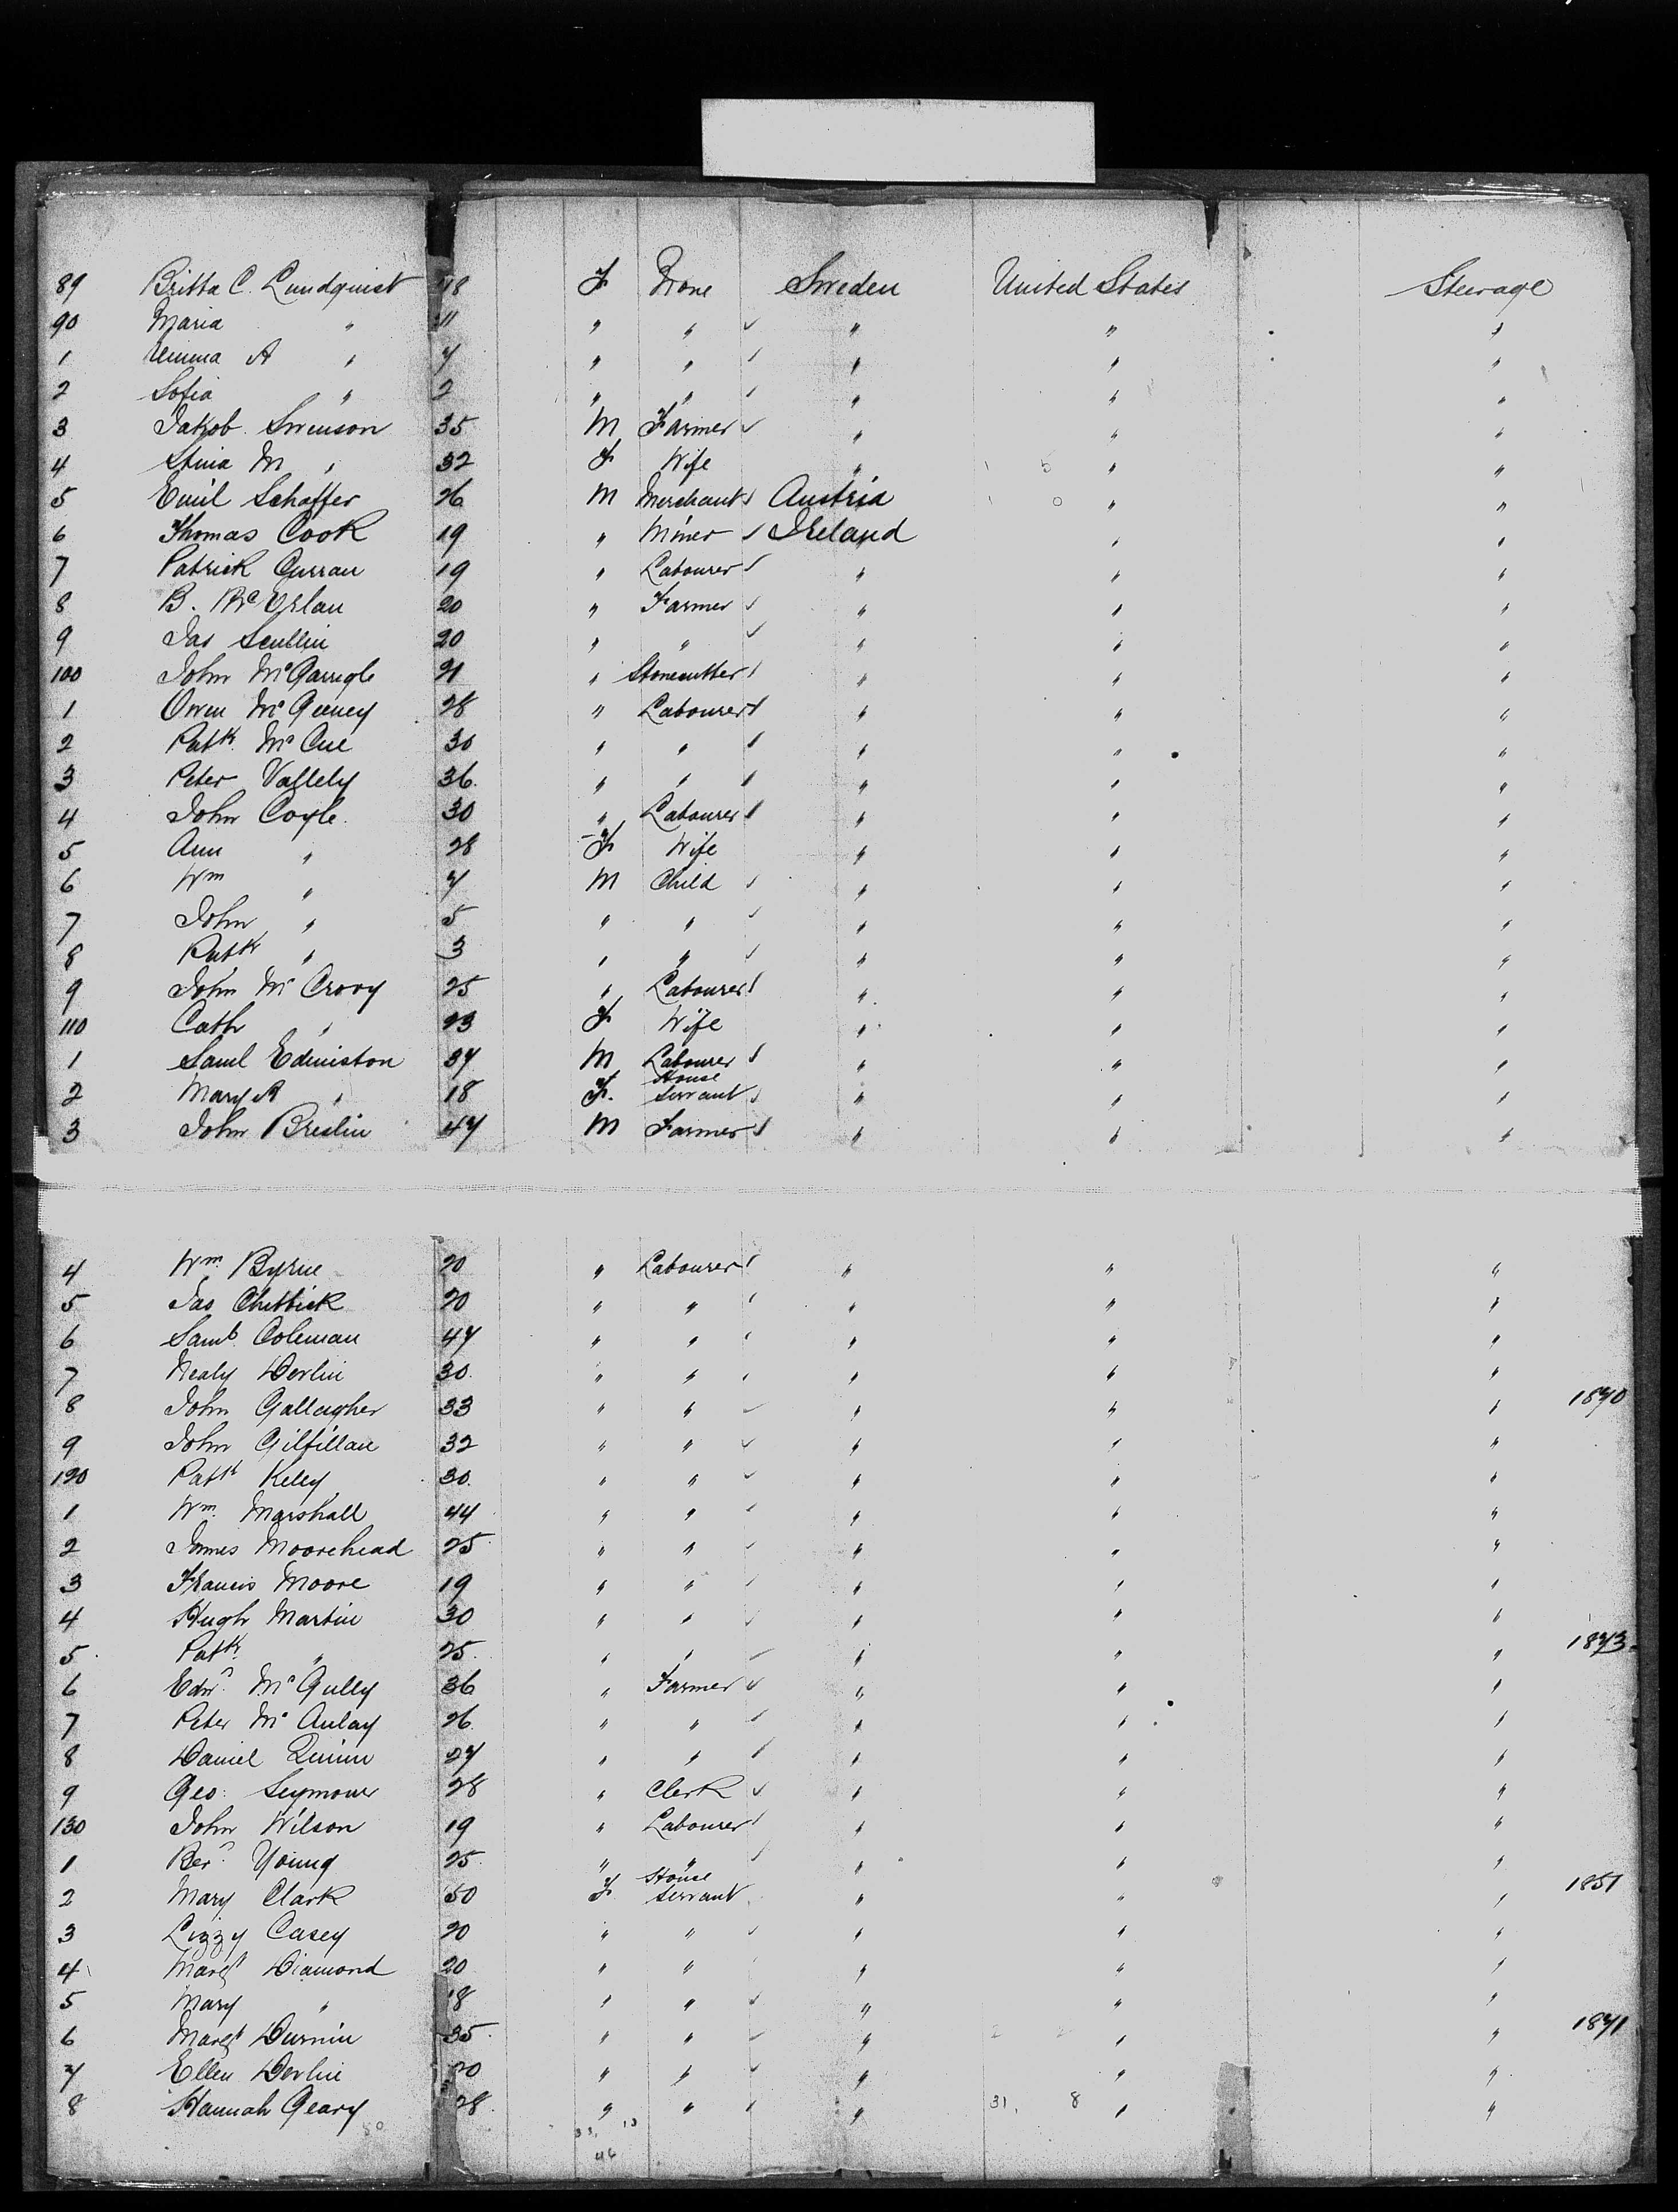 89 Britta C. Lundquist 48 F None Sweden United States Steerage
90 Maria " 11 " " " " "
1 Emma A " 7 " " " " "
2 Sofia " 2 " " " " "
3 Jakob Swenson 35 M Farmer " " "
4 Stina M " 32 F Wife " " "
5 Emil Schaffer 26 M Merchant Austria " "
6 Thomas Cook 19 " Miner Ireland " "
7 Patrick Curran 19 " Labourer " " "
8 B. McErlau 20 " Farmer " " "
9 Jas Scullin 20 " " " " "
100 John McGarrigle 21 " Stonecutter " " "
1 Owen McGeeney 28 " Labourer " " "
2 Patk McCue 30 " " " " "
3 Peter Vallely 36 " " " " "
4 John Coyle 30 " Labourer " " "
5 Ann " 28 F Wife " " "
6 Wm " 7 M Child " " "
7 John " 5 " " " " "
8 Patk " 3 " " " " "
9 John McCrory 25 " Labourer " " "
110 Cath " 23 F Wife " " "
1 Saml Edmiston 37 M Labourer " " "
2 Mary A " 18 F. House Servant " " "
3 John Breslin 47 M Farmer " " "
4 Wm Byrne 20 " Labourer " " "
5 Jas Chittick 20 " " " " "
6 Saml. Coleman 47 " " " " "
7 Nealy Devlin 30 " " " " "
8 John Gallagher 33 " " " " " 1870
9 John Gilfillan 32 " " " " "
120 Patk Keley 30. " " " " "
1 Wm. Marshall 44 " " " " "
2 James Moorehead 25 " " " " "
3 Francis Moore 19 " " " " "
4 Hugh Martin 30 " " " " "
5 Patk. " 25 " " " " " 1873
6 Edwd McGully 36 " Farmer " " "
7 Peter McAulay 26 " " " " "
8 Daniel Quinn 27 " " " " "
9 Geo. Seymour 28 " Clerk " " "
130 John Wilson 19 " Labourer " " "
1 Young 25 " " " " "
2 Mary Clark 50 F House Servant " " " 1851
3 Lizzy Casey 20 " " " " "
4 Margt Diamond 20 " " " " "
5 Mary " 18 " " " " "
6 Margt Durnin 35 " " " " " 1871
7 Ellen Devlin 20 " " " " "
8 Hannah Geary 28 " " " 31, 8 " "
46